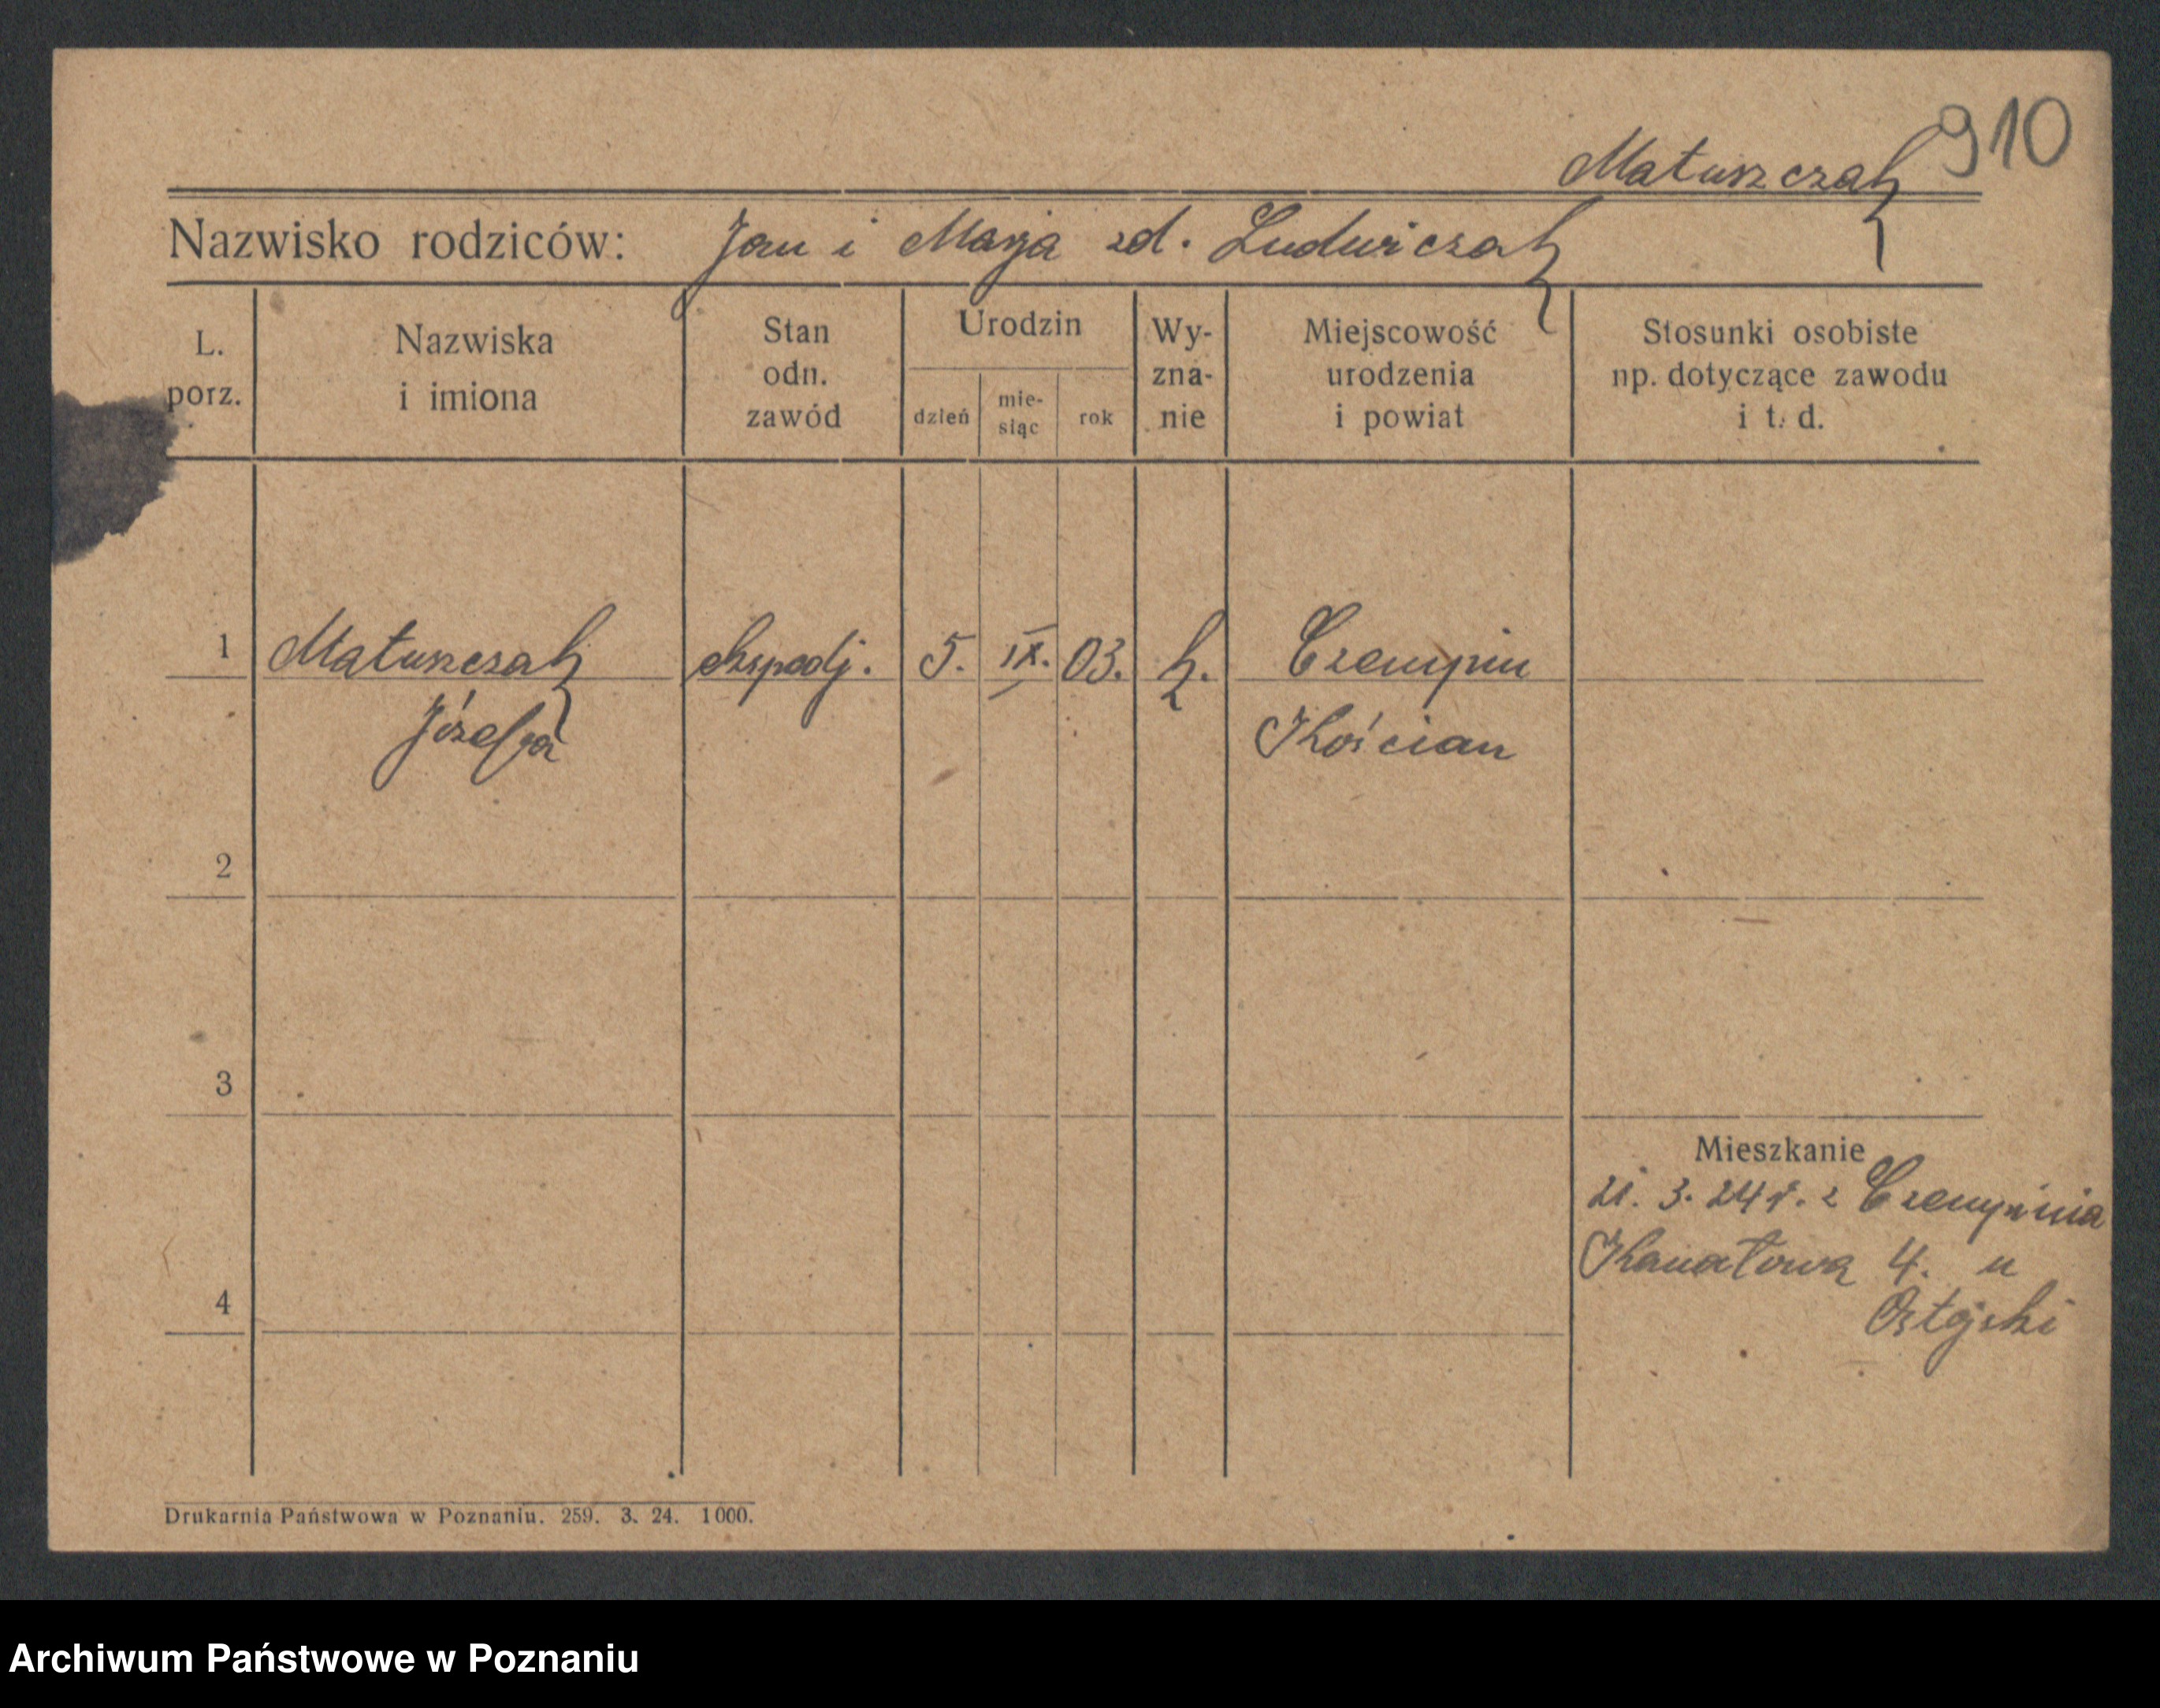 910
Matuszczak
Nazwisko rodziców: Jan i Marja zd. Ludwiczak
L. porz.
Nazwiska i imiona
Stan odn. zawód
Urodzin
dzień
mie-siąc
rok
Wy-zna-nie
Miejscowość urodzenia i powiat
Stosunki osobiste np. dotyczące zawodu i t. d.
1 Matuszczak ekspedj. 5. IX. 03. k. Czempiń
Józefa Kościan
2
3
Mieszkanie
21. 3. 24 r. z Czempinia
Kanałowa 4. u
4
Drukarnia Państwowa w Poznaniu. 259. 3. 24. 1000.
Archiwum Państwowe w Poznaniu